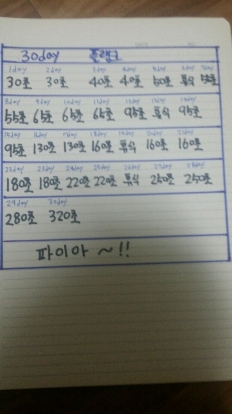 30day 플랭크
1day 2day 3day 4day 5day 6day 7day
30초 30초 40초 40초 50초 휴식 55초
8day 9day 10day 11day 12day 13day 14day
55초 65초 65초 65초 95초 휴식 95초
15day
95초 130초 130초 160초 휴식 160초 160초
22day 23day 24day 25day 26day 27day 28day
180초 180초 220초 220초 휴식 250초 250초
29day 30day
280초 320초
파이아 ~ !!